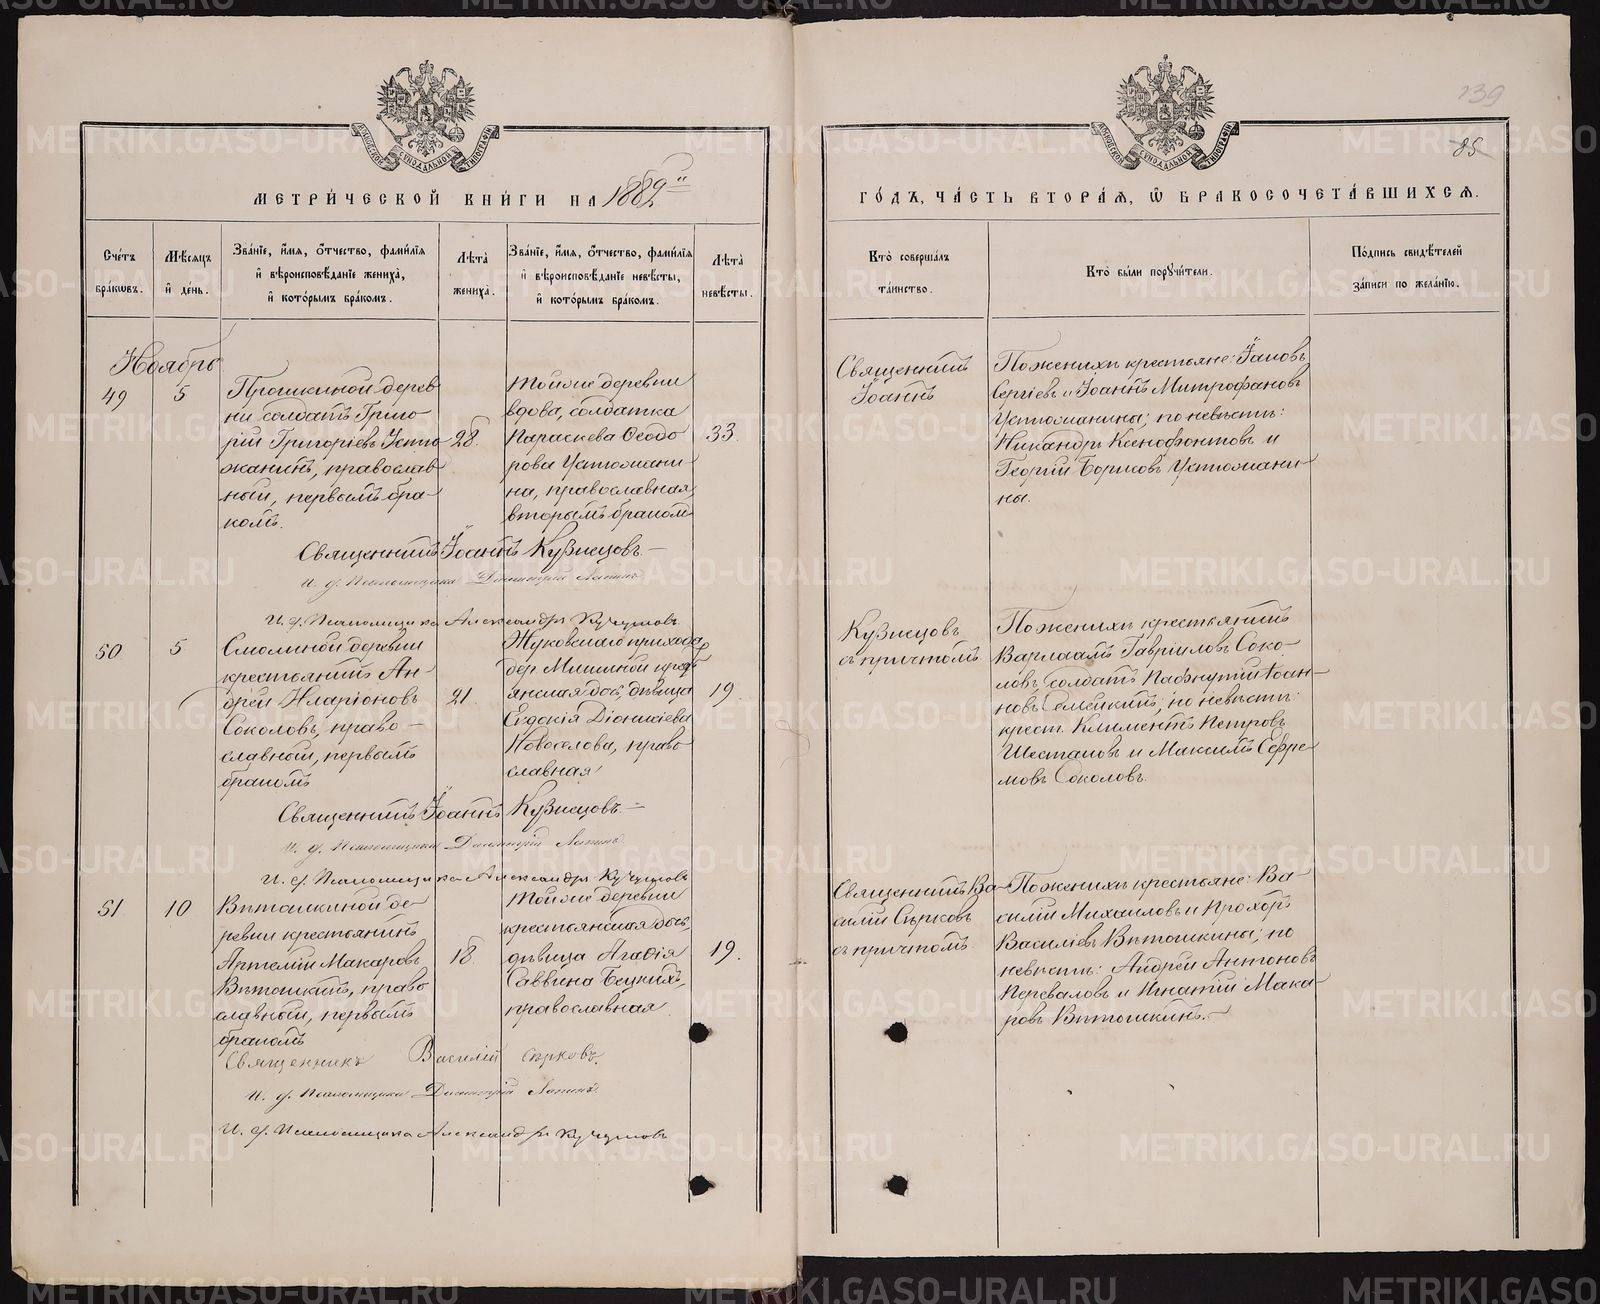 139
85
МЕТРИ́ЧЕСКОЙ КНИ́ГИ НА 1889й
ГО́ДЪ, ЧА́СТЬ ВТОРА́Я, Ѡ БРАКОСОЧЕТА́ВШИХСЯ.
Сче́тъ бра́кѡвъ.
Мѣ́сяцъ и҆ де́нь.
Зва́нїе, и҆́мя, ѻ҆́тчество, фами́лїя
и҆ вѣроисповѣ́данїе жениха̀,
и҆ кото́рымъ бра́комъ.
Лѣ́та жениха̀.
Зва́нїе, и҆́мя, ѻ҆́тчество, фами́лїя
и҆ вѣроисповѣ́данїе невѣ́сты,
и҆ кото́рымъ бра́комъ.
Лѣ́та невѣ́сты.
Кто̀ соверша́лъ
та́инство.
Кто̀ бы́ли порꙋчи́тели.
По́дпись свидѣ́телей
за́писи по жела́нїю.
Ноябрь
49
5
Прошкиной дерев
ни солдатъ Григо
рій Григоріевъ Устю
жанинъ, православ
ный, первымъ бра-
комъ.
28.
Тойже деревни
вдова, солдатка
Параскева Ѳеодо
рова Устюжани-
на, православная,
вторымъ бракомъ
33.
Священникъ
Іоаннъ
По женихѣ крестьяне: Іаковъ
Сергіевъ и Іоаннъ Митрофановъ
Устюжанины; по невѣстѣ:
Никандръ Ксенофонтовъ и
Георгій Борисовъ Устюжани-
ны.
Священникъ Іоаннъ Кузнецовъ
И. д. Псаломщика Димитрій Лапинъ
И. д. Псаломщика Александръ Кучумовъ
50
5
Смолиной деревни
крестьянинъ Ан-
дрей Иларіоновъ
Соколовъ, право-
славный, первымъ
бракомъ
21.
Жуковскаго прихода
дер. Мишиной крест
янская дочь, дѣвица
Евдокія Діонисіева
Новоселова, право
славная
19.
Кузнецовъ
съ причтомъ
По женихѣ крестьянинъ
Варлаамъ Гавріиловъ Соко-
ловъ, солдатъ Пафнутій Іоан-
новъ Семейкинъ; по невѣстѣ:
крест. Климентъ Петровъ
Шестаковъ и Максимъ Ефре-
мовъ Соколовъ.
Священникъ Іоаннъ Кузнецовъ
И. д. Псаломщика Димитрій Лапинъ
И. д. Псаломщика Александръ Кучумовъ
51
10
Вѣтошкиной де-
ревни крестьянинъ
Артемій Макаровъ
Вѣтошкинъ, право
славный, первымъ
бракомъ
18.
Тойже деревни
крестьянская дочь,
дѣвица Агафія
Саввина Бецкихъ,
православная
19.
Священникъ Ва-
силій Сѣрковъ
съ причтомъ
По женихѣ крестьяне: Ва-
силій Михаиловъ и Прохоръ
Василіевъ Вѣтошкины; по
невѣстѣ: Андрей Антоновъ
Переваловъ и Игнатій Мака-
ровъ Вѣтошкинъ.
Священникъ Василій Сѣрковъ.
И. д. Псаломщика Димитрій Лапинъ
И. д. Псаломщика Александръ Кучумовъ
METRIKI.GASO-URAL.RU